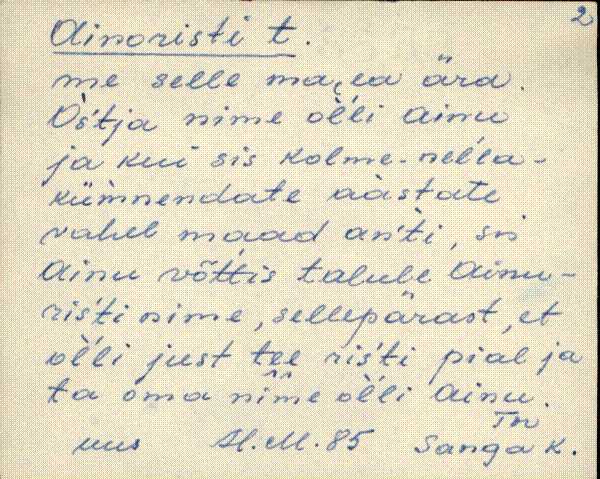 2
Ainoristi t.
me selle maea ära.
Os'tja nime ol'li Ainu
ja kui sis kolme-nel'la-
küm'nendate aastate
vahel maad an'ti, sis
Ainu võttis talule Ainu-
ris'ti nime, sellepärast, et
ol'li just tee ris'ti pial ja
ta oma nime ol'li Ainu.
Trv
uus H.M. 85 Sanga k.